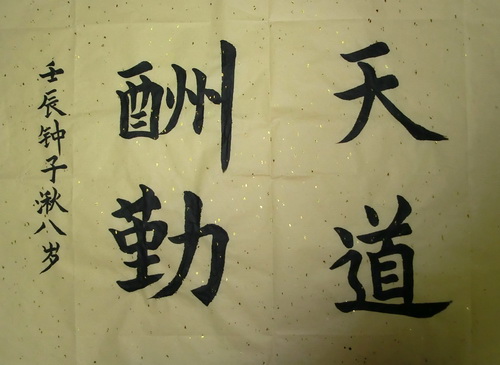 天道
酬勤
壬辰钟子湫八岁